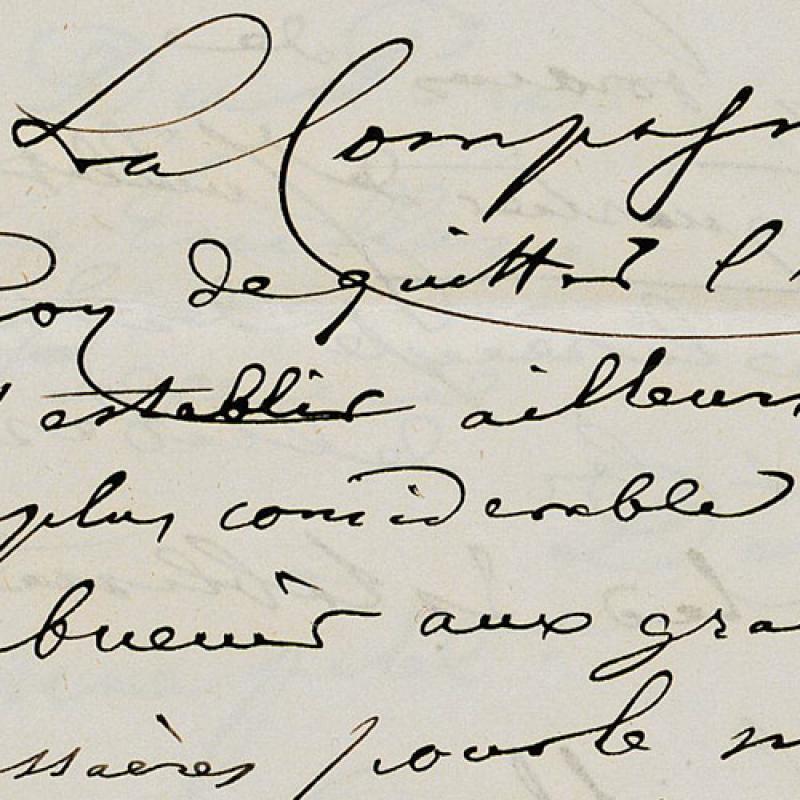 La Compagn
Roy de quitter l'
establir ailleurs
plus considerable
buenir aux gra
ssaires pour le m